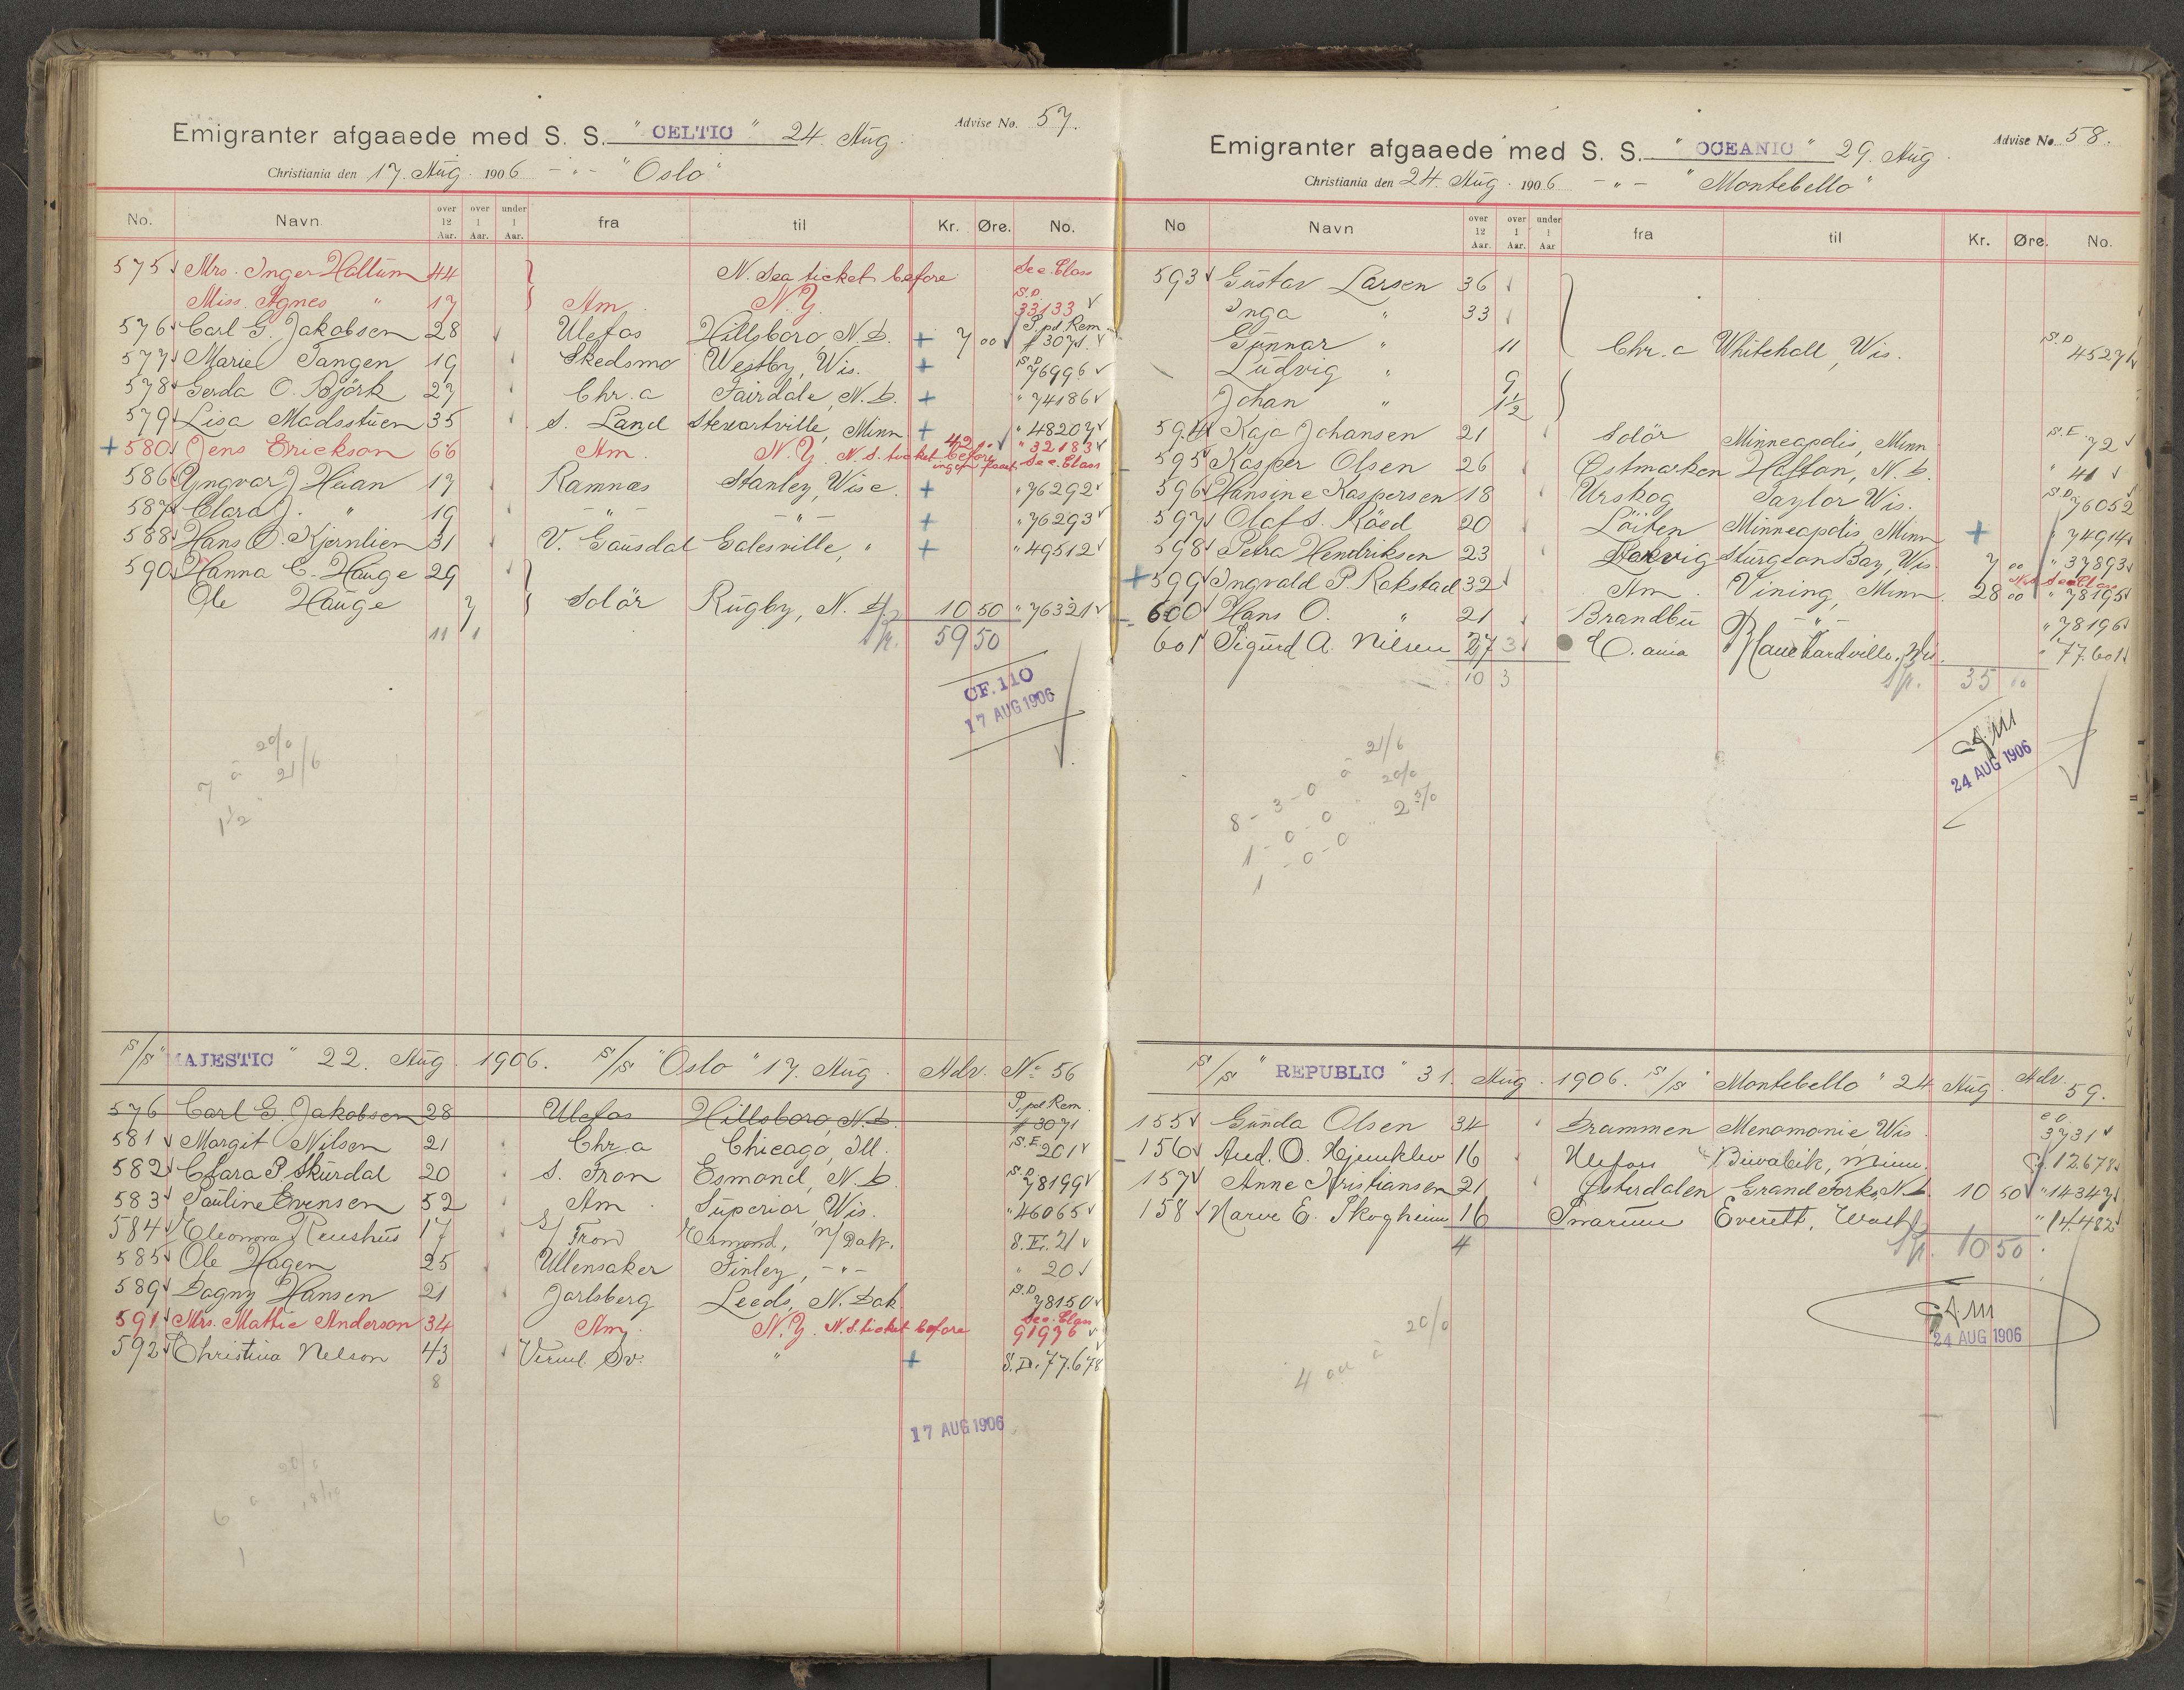 Emigranter afgaaede med S. S. " CELTIC " 24. Aug. Advise No. 57.
Christiania den 17. Aug. 1906 - " - "Oslo"
No. Navn. over 12 Aar. over 1 Aar. under 1 Aar. fra til Kr. Øre. No.
575 Mrs. Inger Hallum 44 N. Sea ticket before See. Class
Miss. Agnes " 17 Am. N.Y. S.D. 33133
576 Carl G. Jakobsen 28 Ulefos Hillsboro, N.D. + 7 00 P. pd. Rem. # 3071.
577 Marie Tangen 19 Skedsmo Westby, Wis. + S.D. 76996
578 Gerda O. Björk 27 Chr. a Fairdale, N.D. + " 74186
579 Lisa Madsstuen 35 S. Land Stewartville, Minn + " 48207
+ 580 Jens Erickson 66 Am. N.Y. N.S. ticket before 42 " 32183 See. Class
586 Yngvar J. Haan 17 Ramnæs Stanley, Wisc. + " 76292
587 Clara J. " 19 - " - - " - + " 76293
588 Hans O. Kjernlien 31 V. Gausdal Galesville, " + " 49512
590 Hanna C. Hauge 29
Ole Hauge 7 Solör Rugby, N.D. 10 50 " 76321
11 1 59 50
CF. 110
17 AUG 1906
20/0
7 à 21/6
1 1/2 "
S/S "MAJESTIC" 22. Aug. 1906. S/S "Oslo" 17. Aug. Adv. No 56
576 Carl G. Jakobsen 28 Ulefos Hillsboro, N.D. P. pd Rem. # 3071
581 Margit Nilsen 21 Chr. a Chicago, Ill. S.E. 201
582 Clara P. Skurdal 20 S. Fron Esmond, N.D. S.D. 78199
583 Pauline Evensen 52 Am. Superior Wis. " 46065
584 Eleonora Ruushus 17 S/ Fron Esmond, N/Dak. S.E. 21
585 Ole Hagen 25 Ullensaker Finley, - " - " 20
589 Dagny Hansen 21 Jarlsberg Leeds, N. Dak. S.D. 78150
591 Mrs. Mattie Anderson 34 Am. N.Y. N.S. ticket before See. Class 91976
592 Christina Nelson 43 Verml. Sv. " + S.D. 77.678
8
17 AUG 1906
Emigranter afgaaede med S. S. " OCEANIC " 29. Aug. Advise No. 58.
Christiania den 24. Aug. 1906 - " - "Montebello"
No Navn over 12 Aar. over 1 Aar. under 1 Aar fra til Kr. Øre. No.
593 Gustav Larsen 36
Inga " 33
Gunnar " 11 Chr. a Whitehall, Wis. S.D. 45271
Ludvig " 9
Johan " 1 1/2
594 Kaja Johansen 21 Solör Minneapolis, Minn S.E. 72
595 Kasper Olsen 26 Østmarken Hatton, N.D. " 41
596 Hansine Kaspersen 18 Urskog Taylor Wis. S.D. 76052
597 Olaf S. Röed 20 Löiten Minneapolis, Minn + " 74914
598 Petra Hendriksen 23 Sturgeon Bay, Wis. 7 00 " 37893
+ 599 Ingvald P. Rokstad 32 Am. Vining, Minn. 28 00 See Class " 78195
600 Hans O. " 21 Brandbu - " - " 78196
601 Sigurd A. Nilsen 27 " 77.601
10 3 35 00
24 AUG 1906
21/6
8 - 3 - 0 à 20/0
1 - 0 - 0 "
1 - 0 - 0
S/S " REPUBLIC " 31. Aug. 1906. S/S "Montebello" 24 Aug. Adv. 59.
155 Gunda Olsen 34 Drammen Menomonie, Wis. 3731
156 And. O. Hjuuklev 16 Ulefoss Biwabik, Minn. 12678
157 Anne Kristiansen 21 Østerdalen Grand Forks N.D. 10 50 " 14347
158 Narve E. Skogheim 16 Snarum Everett, Wash " 14.482
4 10 50
24 AUG 1906
20/0